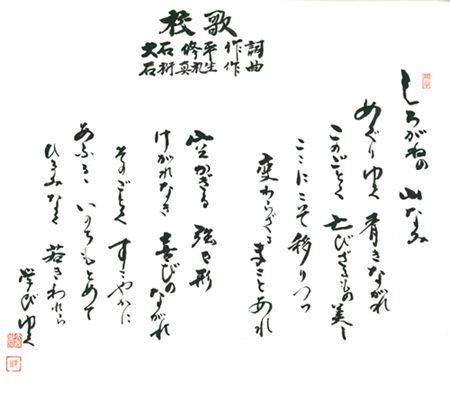 校歌
大石 修平 作詞
石桁 真礼生 作曲
しろがねの 山なみ
めぐりゆく 青きながれ
このごとく 亡びざるもの美し
ここにこそ移りつつ
変わらざるまことあれ
かぎる 強き形
けがれなき 喜びのながれ
そのごとく すこやかに
あふるゝ いのちもとめて
ひるみなく 若きわれら
学びゆく